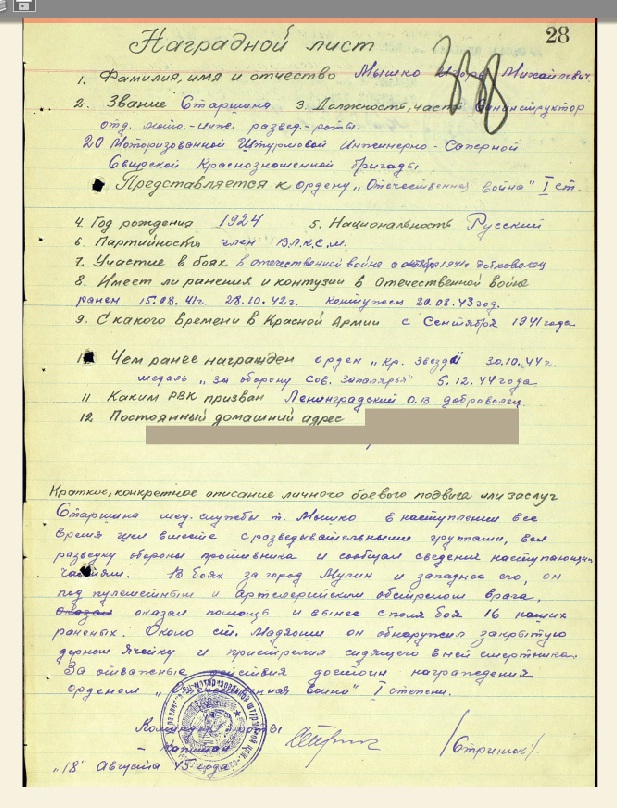 28
Наградной лист
1. Фамилия, имя и отчество Мышко Игорь Михайлович
2. Звание Старшина 3. Должность, часть Санинструктор
отд. мото.-инж. развед.-роты
20 Моторизованной Штурмовой Инженерно-Саперной
Свирской Краснознаменной бригады
Представляется к ордену „Отечественная война" I ст.
4. Год рождения 1924 5. Национальность Русский
6. Партийность член В.Л.К.С.М.
7. Участие в боях в отечественной войне с октября 1941г.
8. Имеет ли ранения и контузии в Отечественной войне
ранен 15.08.41г. 28.10.42г. контужен 20.08.43 год.
9. С какого времени в Красной Армии с Сентября 1941 года
Чем ранее награжден орден „Кр. Звезда" 30.10.44г.
медаль „За оборону Сов. Заполярья" 5.12.44 года
11 Каким РВК призван Ленинградский доброволец
12. Постоянный домашний адрес
Краткое, конкретное описание личного боевого подвига или заслуг
Старшина мед. службы т. Мышко в наступлении все
время шел вместе с разведывательными группами, вел
разведку обороны противника и сообщал сведения наступающим
частям. В боях за город Мулин и западнее его, он
под пулеметным и артиллерийским обстрелом врага,
оказал помощь и вынес с поля боя 16 наших
раненых. Около ст. он обнаружил закрытую
дерном ячейку и пристрелил сидящего в ней смертника.
За отважные действия достоин награждения
орденом „Отечественная война" I степени.
Командир роты
– Капитан
„18" Августа 45 года